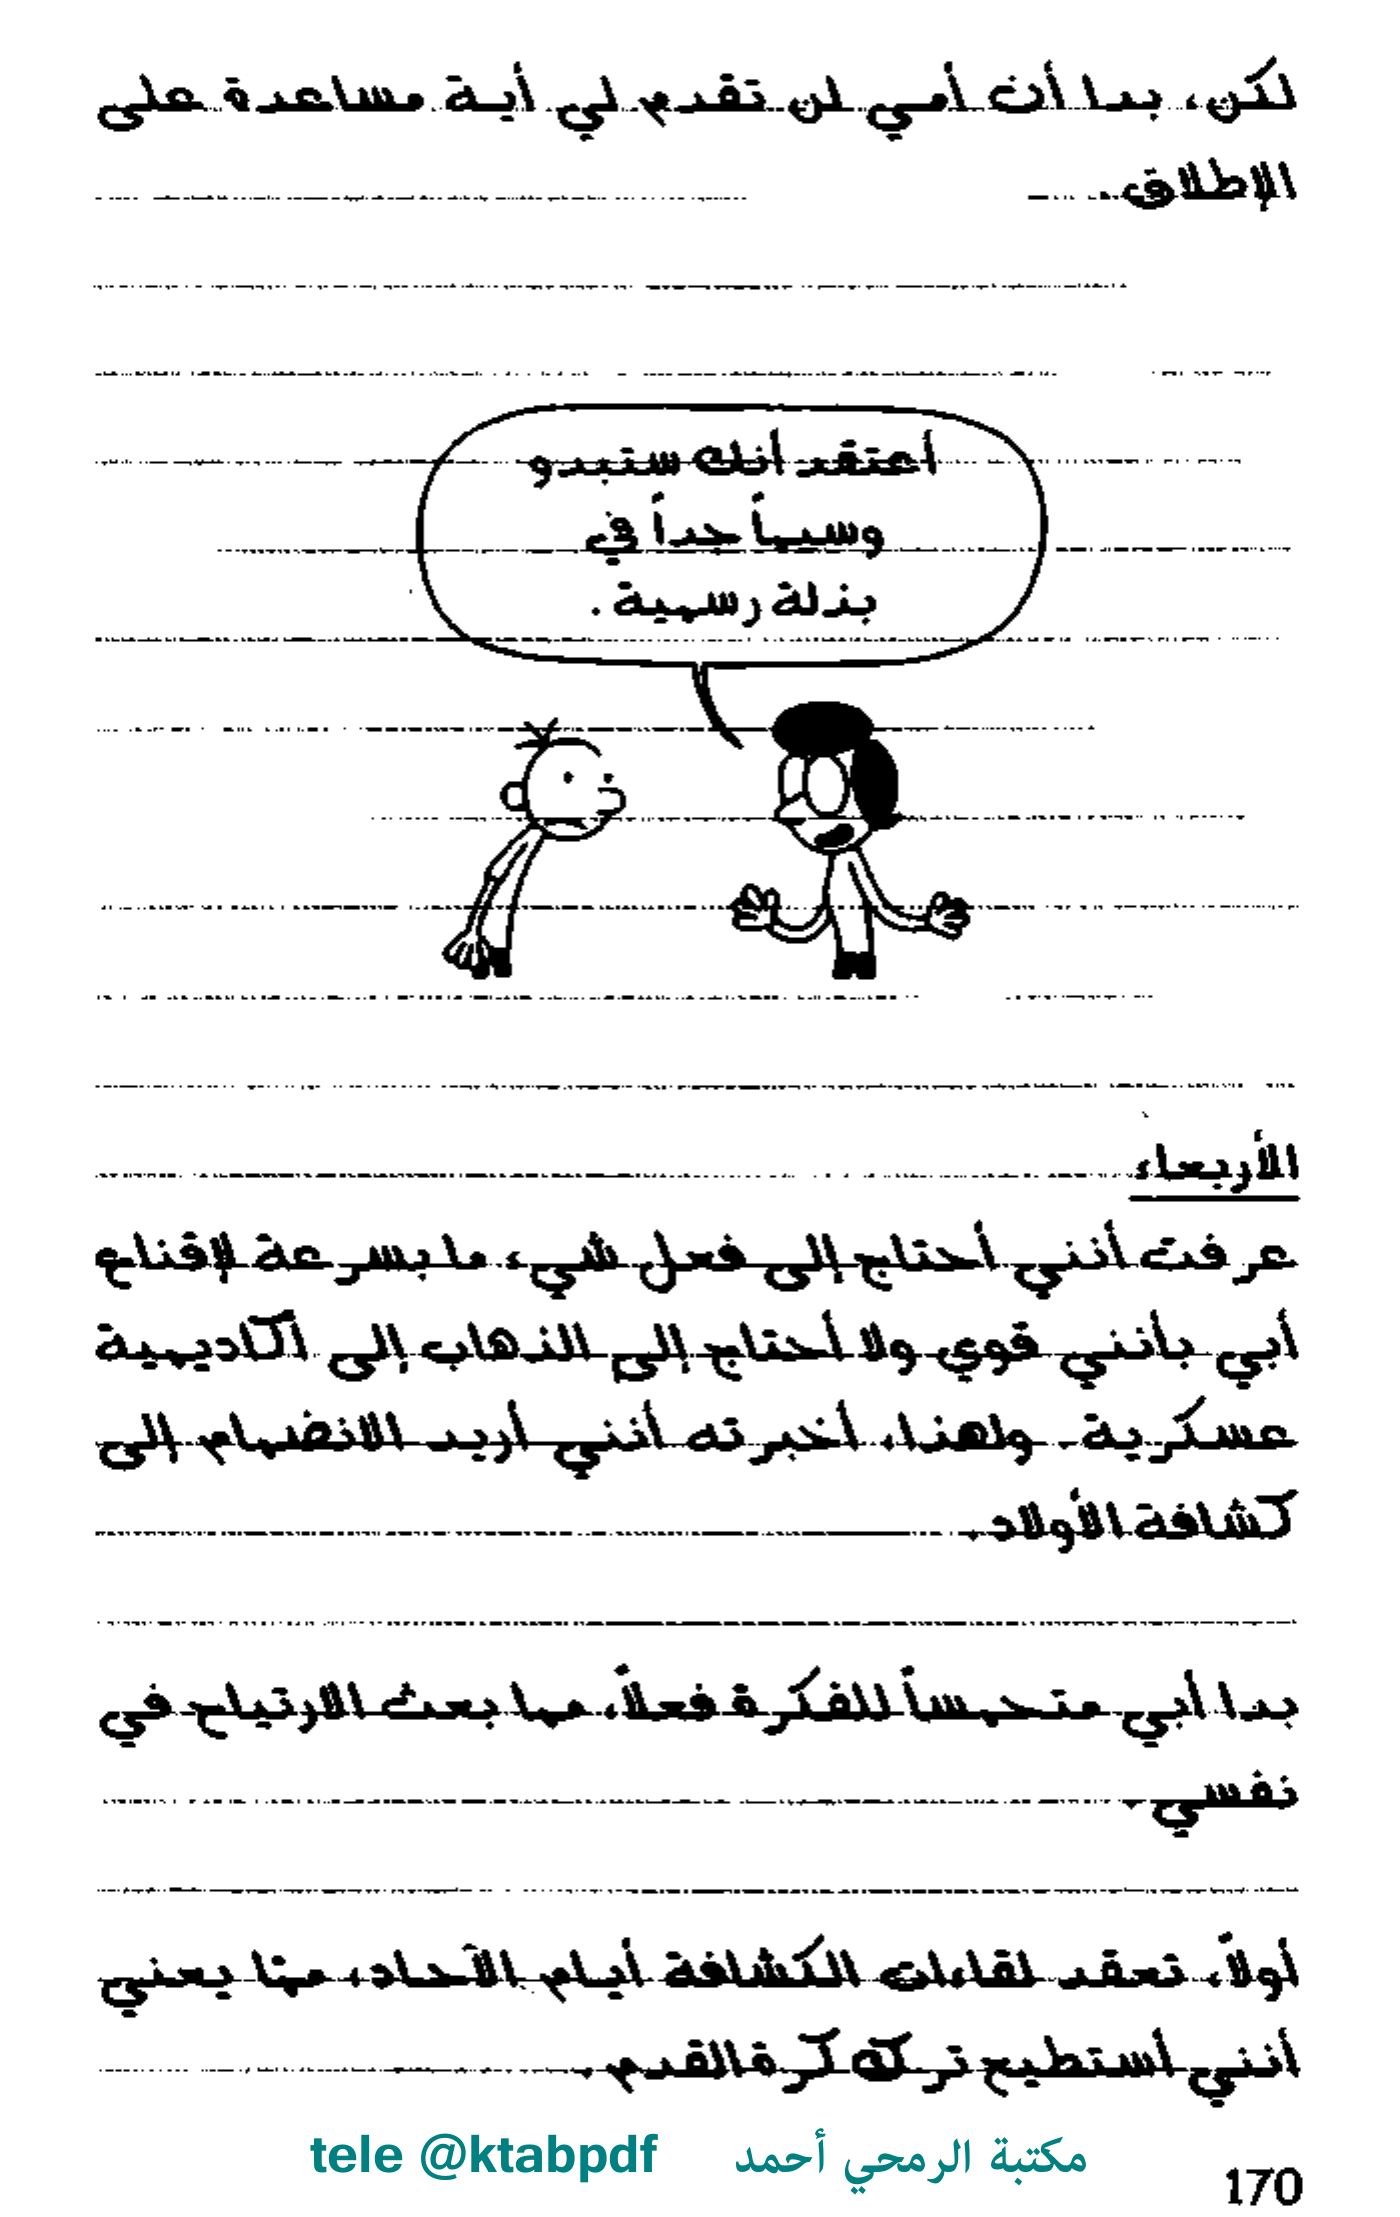 لكن، بدا أن أمي لن تقدم لي أية مساعدة على
الإطلاق.
أعتقد أنك ستبدو
وسيماً جداً في
بذلة رسمية.
الأربعاء
عرفت أنني أحتاج إلى فعل شيء ما بسرعة لإقناع
أبي بأنني قوي ولا أحتاج إلى الذهاب إلى أكاديمية
عسكرية. ولهذا، أخبرته أنني أريد الانضمام إلى
كشافة الأولاد.
بدا أبي متحمساً للفكرة فعلاً، مما بعث الارتياح في
نفسي.
أولاً، تعقد لقاءات الكشافة أيام الآحاد، ممّا يعني
أنني أستطيع ترك كرة القدم.
مكتبة الرمحي أحمد tele @ktabpdf
170